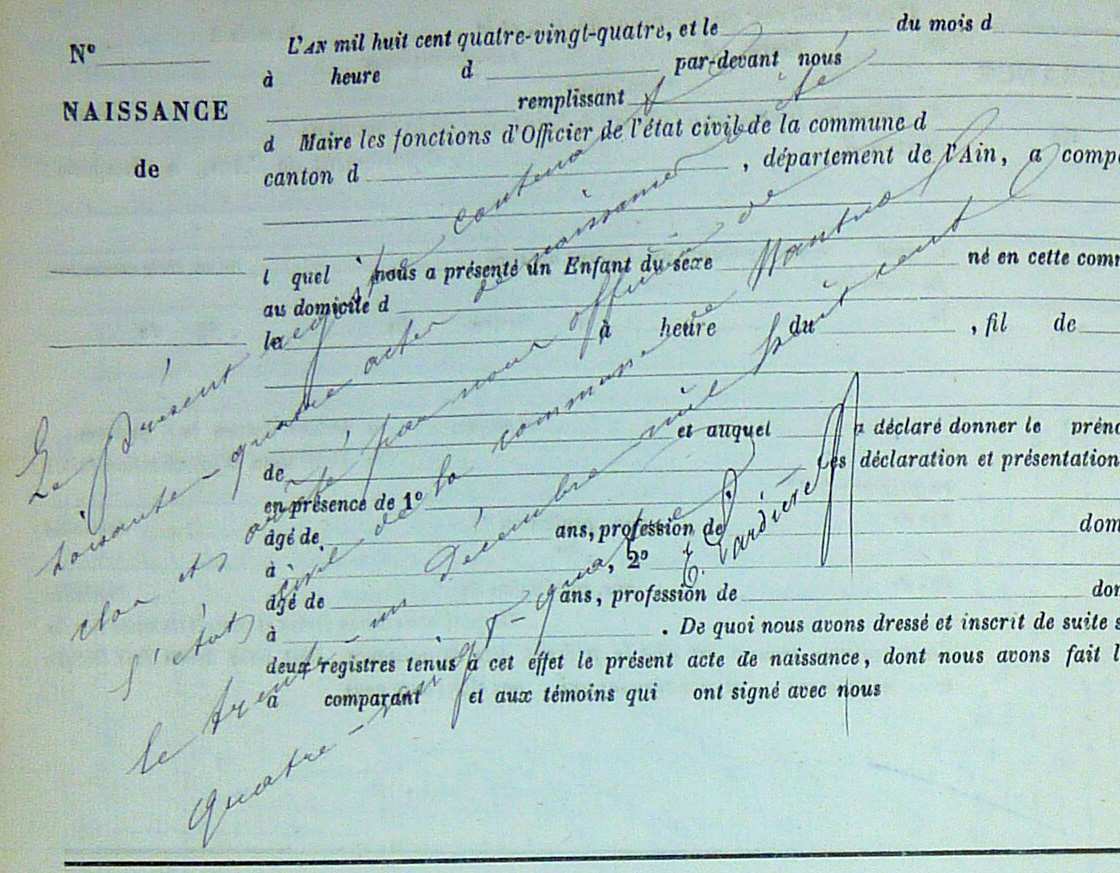 N°
NAISSANCE
de
L'AN mil huit cent quatre-vingt-quatre, et le du mois d
à heure d par-devant nous
remplissant
d Maire les fonctions d'Officier de l'état civil de la commune d
canton d , département de l'Ain, a comp
l quel nous a présenté un Enfant du sexe né en cette com
au domicile d
le à heure du , fil de
et auquel a déclaré donner le prén
de Ces déclaration et présentation
en présence de 1°
âgé de ans, profession de dom
à , 2°
âgé de ans, profession de don
à . De quoi nous avons dressé et inscrit de suite s
deux registres tenus à cet effet le présent acte de naissance, dont nous avons fait l
à comparant et aux témoins qui ont signé avec nous
Le présent registre contenant
soixante-quatre actes de naissance a été
clos et arrêté par nous officier de
l'état civil de la commune de Mantenay
le trente-un décembre mil huit cent
quatre-vingt-quatre